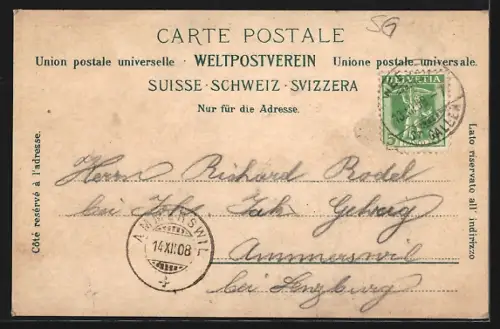 SG
CARTE POSTALE
Union postale universelle · WELTPOSTVEREIN · Unione postale universale.
SUISSE · SCHWEIZ · SVIZZERA
Nur für die Adresse.
HELVETIA
ST. GALLEN
Côté reservé à l'adresse.
Lato riservato all' indirizzo
Herrn Richard Rodel
bei Jak. Gehrig
Ammerswil
bei Lenzburg
AMMERSWIL
14.XI.08